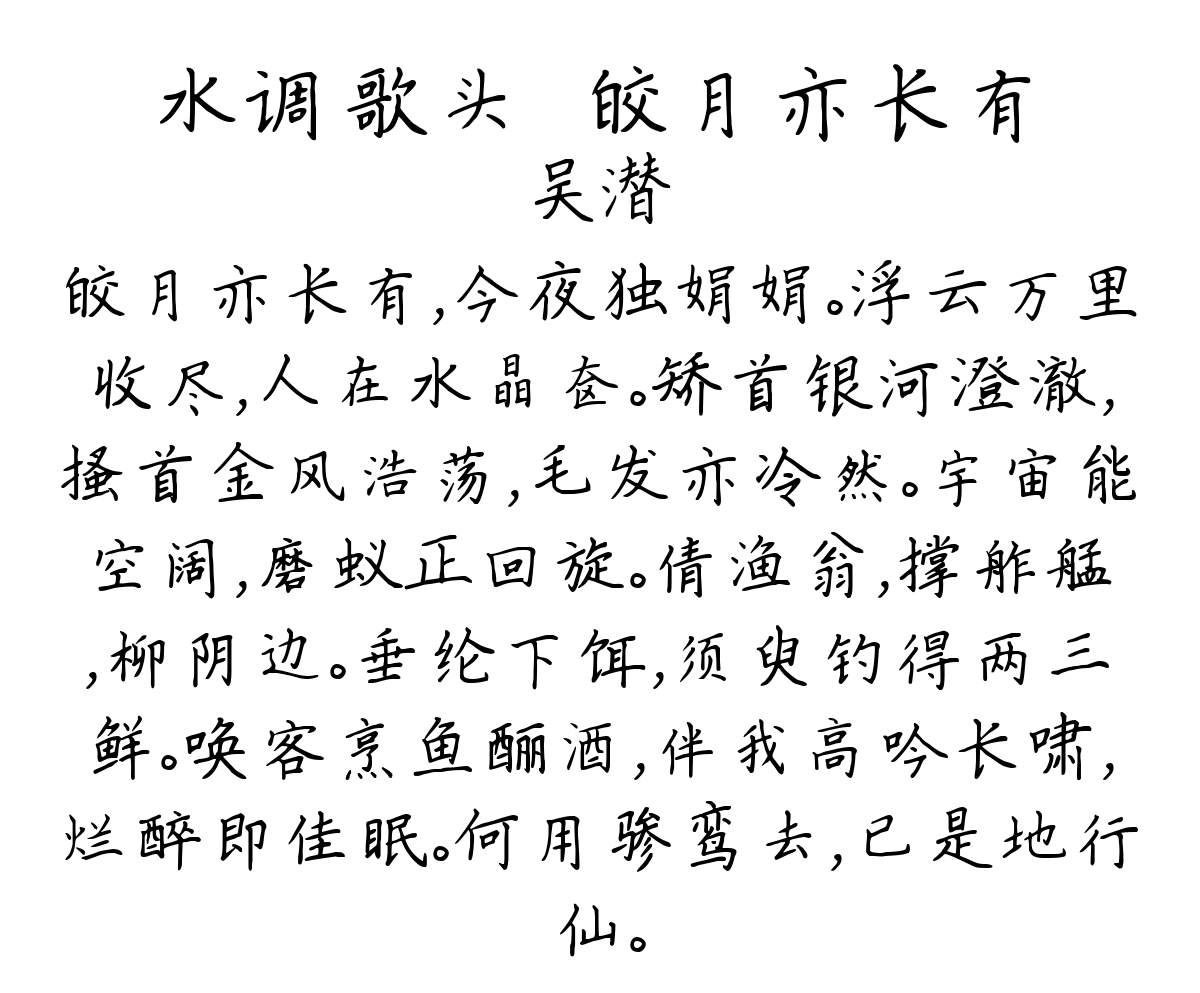 水调歌头 皎月亦长有
吴潜
皎月亦长有,今夜独娟娟。浮云万里
收尽,人在水晶奁。矫首银河澄澈,
搔首金风浩荡,毛发亦冷然。宇宙能
空阔,磨蚁正回旋。倩渔翁,撑舴艋
,柳阴边。垂纶下饵,须臾钓得两三
鲜。唤客烹鱼酾酒,伴我高吟长啸,
烂醉即佳眠。何用骖鸾去,已是地行
仙。